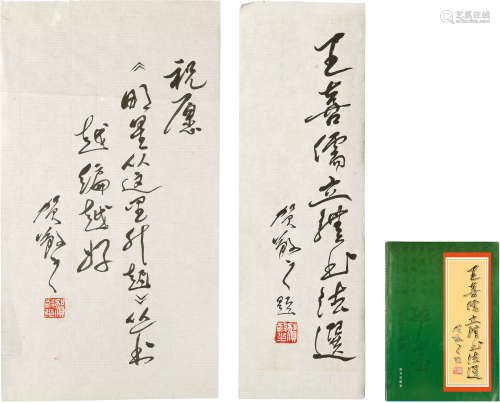 祝愿
《明星从这里升起》丛书
越编越好
贺敬之
王喜儒立体书法选
贺敬之题
王喜儒立体书法选
贺敬之题